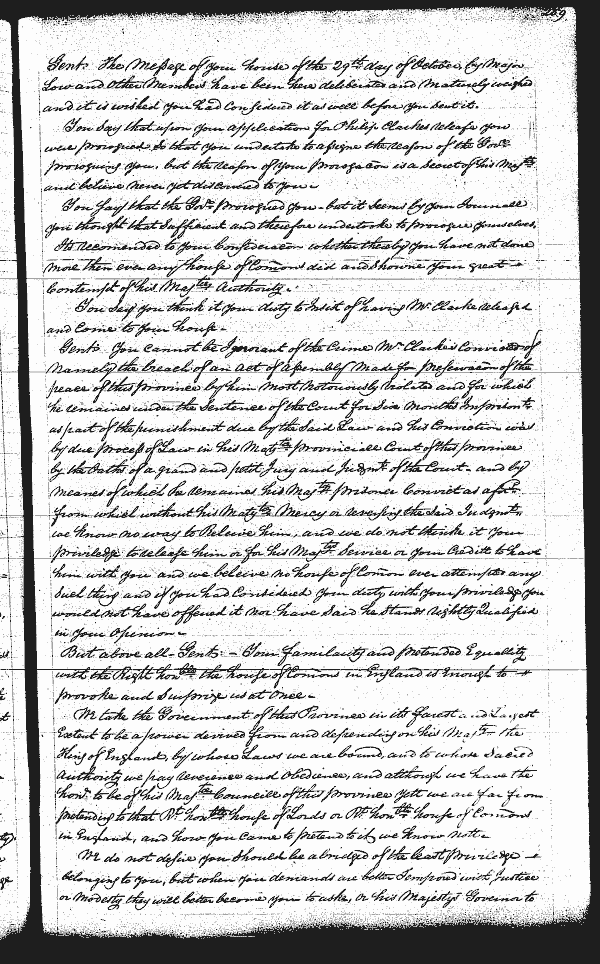 259
Gent. The Message of your house of the 29th day of October by Major
Law and other Members have been here deliberated and Maturely weighed
and it is wished you had Considered it as well before you sent it.
You Say that upon your application for Philip Clarkes release you
were prorogued So that you undertake to assigne the reason of the Govrs
proroguing you, but the reason of your Prorogacon is a Secret of his Majts
and believe never yet discovered to you.
You Say that the Govr Prorogued you - but it Seems by your Journall
you thought that Sufficient and therefore undertook to prorogue yourselves.
Its recomended to your Consideracon whether thereby you have not done
more then ever any house of Comons did and Shewne your great
Contempt of his Majtys Authority.
You Say you think it your duty to Insist of having Mr Clarke released
and Come to your house.
Gent. You cannot be Ignorant of the Crime Mr Clarke is Convicted of
Namely the breach of an Act of Assembly Made for preservacon of the
peace of this Province by him most Notoriously Violated and for which
he remaines under the Sentence of the Court for Six Months Imprisont
as part of the punishment due by the Said Law and his Conviction was
by due process of Law in his Matys Provinciall Court of this Province
by the Oaths of a grand and petit Jury and Judgmt of the Court - and by
meanes of which he remaines his Majtys prisoner Convict as aforesd
from which without his Matys Mercy or reversing the Said Judgmt
we know no way to Releive him, and we do not thinke it your
priviledge to release him or for his Majtys Service or your Creditt to have
him with you and we beleive no house of Comon ever attempted any
Such thing and if you had Considered your duty with your priviledge you
would not have offered it nor have Said he Stands rightly Qualified
in your Opinion.
But above all - Gents: - Your familiarity and pretended Equallity
with the Right honble the house of Comons in England is Enough to
provoke and Surprize us at Once.
We take the Government of this Province in its fairest and Largest
Extent to be a power derived from and depending on his Majty the
King of England, by whose Laws we are bound, and to whose Sacred
Authority we pay reverence and Obedience, and although we have the
honr. to be of his Majtys Councill of this Province yett we are far from
pretending to that Rt. honble house of Lords or Rt. honble house of Comons
in England, and how you Came to pretend to it we know not.
We do not desire you Should be abridged of the least Priviledge
belonging to you, but when your demands are better Tempored with Justice
or Modesty they will better become you to aske, or his Majestys Governor to